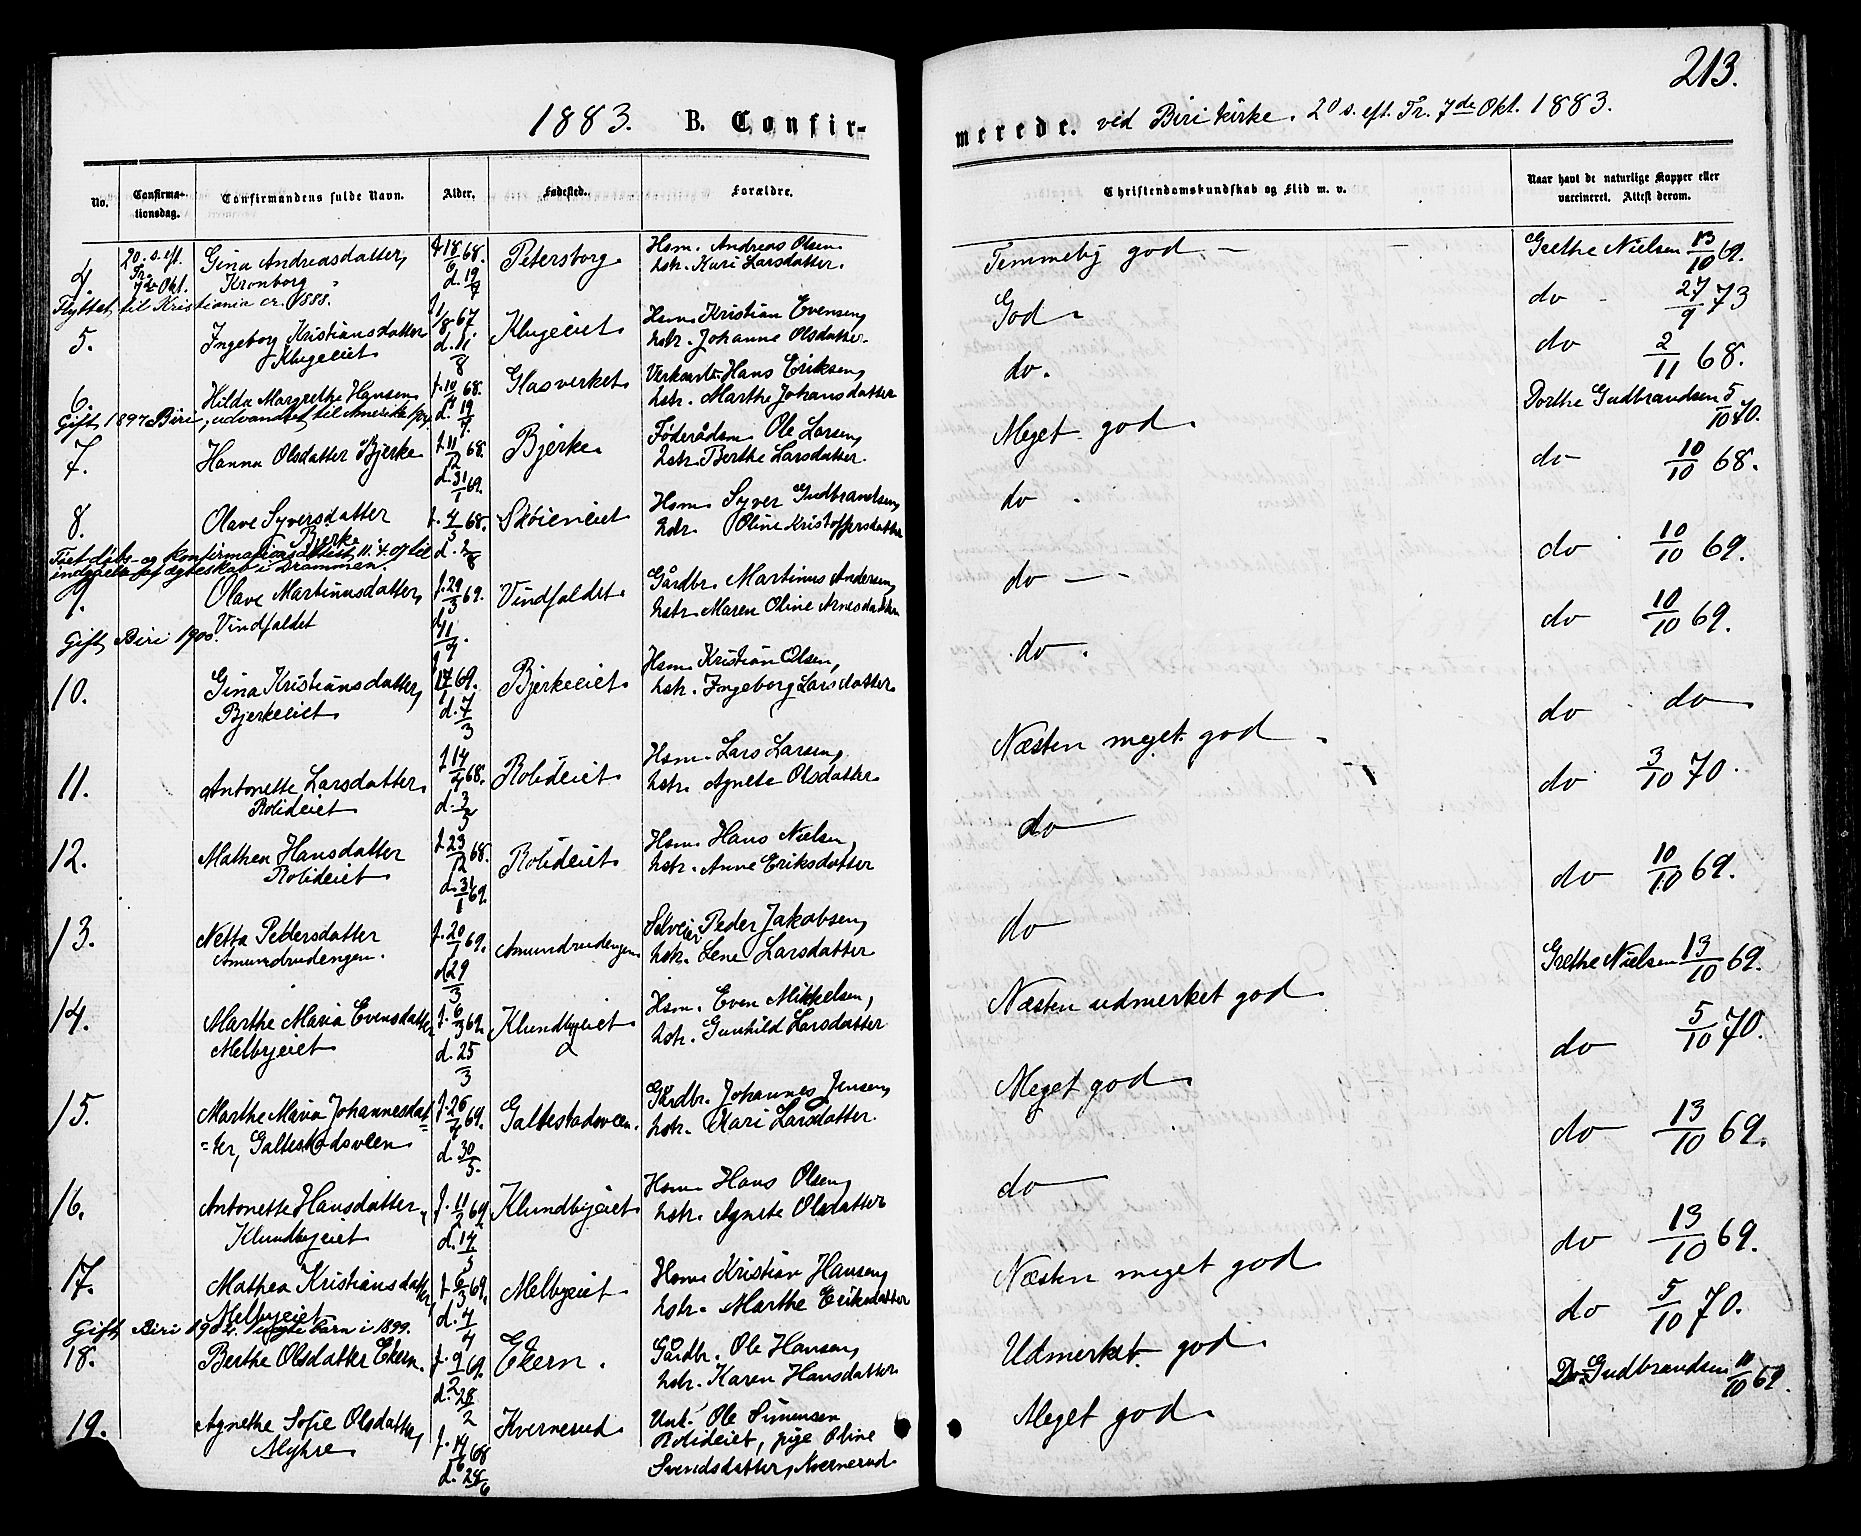 213.
1883. B. Confir-
merede. ved Biri kirke. 20 s. eft. Tr. 7de Okt. 1883.
No. Confirma-tionsdag. Confirmandens fulde Navn. Alder. Fødested. Forældre.
Christendomskundskab og Flid m. v. Naar havt de naturlige Kopper eller vaccineret. Attest derom.
4. 20. s. eft. Tr. 7de Okt. Gina Andreasdatter, Kronborg f. 18/6 68. d. 19/7 Petersborg Hsm. Andreas Olsen hstr. Kari Larsdatter.
Flyttet til Kristiania cr. 1888.
5. Ingeborg Kristiansdatter Klugeeiet f. 1/8 67. d. 11/8 Klugeeiet Hsm. Kristian Evensen, hstr. Johanne Olsdatter.
6. Hilda Margrethe Hansen f. 10/ 68. d. 19/7 Glasverket Hans Eriksen, hstr. Marthe Johansdatter
Gift 1897 Biri, udvandret til Amerika
7. Hanna Olsdatter Bjerke f. 11/12 68. d. 31/1 69. Bjerke Føderådsm Ole Larsen, hstr. Berthe Larsdatter.
8. Olave Syversdatter Bjerke f. 4/3 68. d. 2/8 Skøieneiet Hsm. Syver Gudbrandsen, hstr. Oline Kristoffersdatter
Fået dåbs- og konfirmationsattest 11.4.07 til indgåelse af ægteskab i Drammen.
9. Olave Martinusdatter, Vindfaldet f. 29/3 69. d. 11/4. Vindfaldet Gårdbr. Martinus Andersen, hstr. Maren Oline Arnesdatter
Gift Biri 1900.
10. Gina Kristiansdatter, Bjerkeeiet f. 17/1 69. d. 7/3 Bjerkeeiet Hsm. Kristian Olsen, hstr. Ingeborg Larsdatter
11. Antonette Larsdatter Rolideiet f. 14/4 68. d. 3/5 Rolideiet Hsm. Lars Larsen, hstr. Agnete Olsdatter
12. Mathea Hansdatter Rolideiet f. 23/12 68. d. 31/1 69. Rolideiet Hsm. Hans Nielsen, hstr. Anne Eriksdatter
13. Netta Pedersdatter Amundrudengen. f. 20/1 69. d. 29/3 Amundrudengen Selveier Peder Jakobsen, hstr. Lene Larsdatter
14. Marthe Maria Evensdatter Melbyeiet f. 6/3 69. d. 25/3 Klundbyeiet Hsm. Even Mikkelsen, hstr. Gunhild Larsdatter
15. Marthe Maria Johannesdat=
=ter, Galtestadsveen f. 26/4 69. d. 30/5. Galtestadsveen. Gårdbr. Johannes Jensen, hstr. Kari Larsdatter.
16. Antonette Hansdatter, Klundbyeiet f. 11/2 69. d. 14/3 Klundbyeiet Hsm. Hans Olsen, hstr. Agnete Olsdatter
17. Mathea Kristiansdatter, Melbyeiet f. 6/3 69. d. 4/4 Melbyeiet Hsm. Kristian Hansen, hstr. Marthe Eriksdatter
Gift Biri barn i 1899.
18. Berthe Olsdatter Ekern. f. 9/2 69. d. 28/2 Ekern. Gårdbr. Ole Hansen, hstr. Karen Hansdatter
19. Agnethe Sofie Olsdatter, Myhre f. 14/6 68 d. 24/6 Kvernerud Unk. Ole Simensen
Rolideiet, pige Oline
Svendsdatter, Kvernerud
Temmelig god Grethe Nielsen 13/10 69.
God do 27/9 73
do. do 2/11 68.
Meget god Dorthe Gudbrandsen 5/10 70.
do do 10/10 68.
do do 10/10 69.
do. do 10/10 69.
Næsten meget god do do
do do 3/10 70.
do do 10/10 69.
Næsten udmerket god Grethe Nielsen 13/10 69.
Meget god do 5/10 70.
do do 13/10 69.
Næsten meget god do 13/10 69.
Udmerket god do 5/10 70.
Meget god Do. Gudbrandsen 10/10 69.